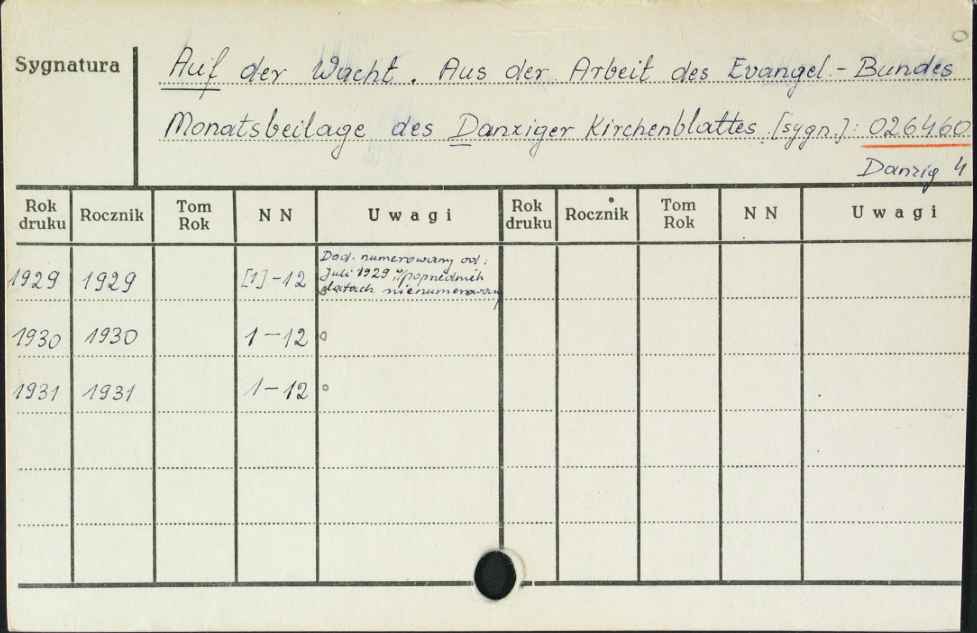 Sygnatura
Auf der Wacht. Aus der Arbeit des Evangel-Bundes
Monatsbeilage des Danziger Kirchenblattes [sygn.]: 026460
Danzig 4
Rok druku Rocznik Tom Rok N N Uwagi Rok druku Rocznik Tom Rok N N Uwagi
1929 1929 [1]-12 Dod. numerowany od:
Juli 1929 w poprzednich
datach nienumerowany
1930 1930 1-12
1931 1931 1-12